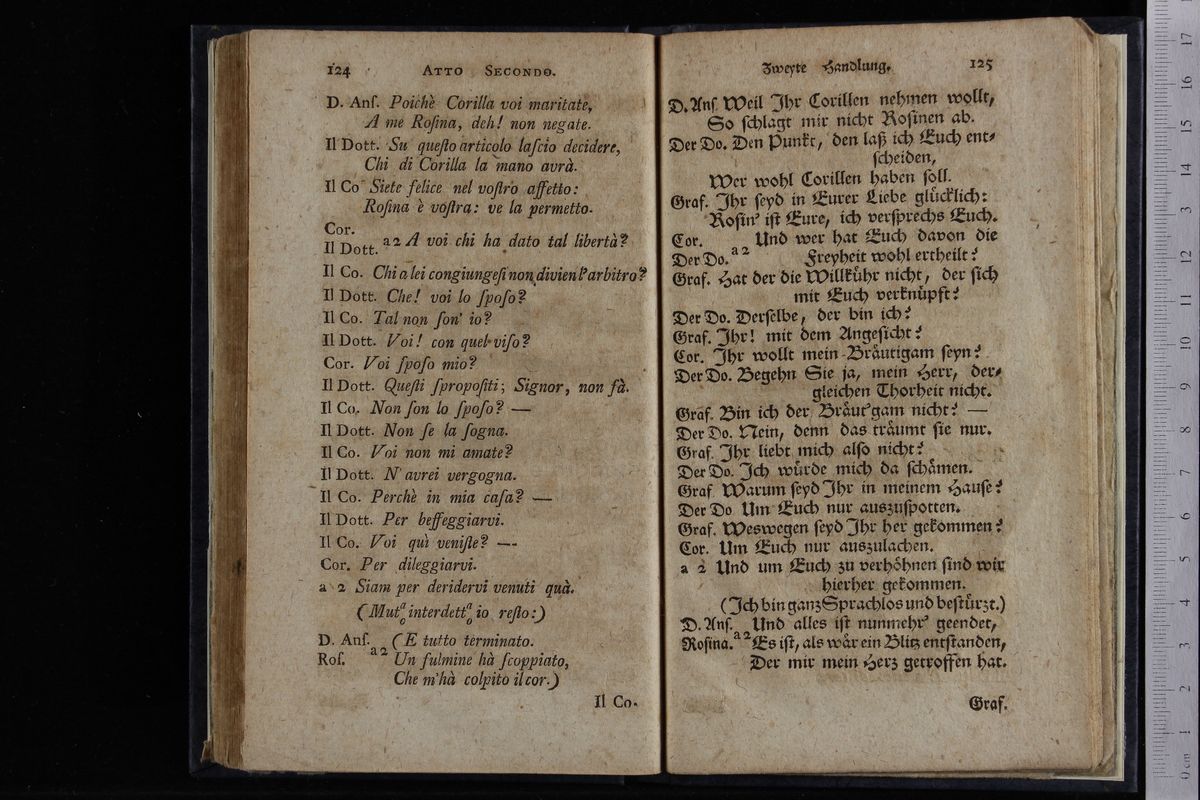 124 ATTO SECONDO.
D. Anſ. Poichè Corilla voi maritate,
A me Roſina, deh! non negate.
Il Dott. Su queſto articolo laſcio decidere,
Chi di Corilla la mano avrà.
Il Co Siete felice nel voſtro affetto:
Roſina è voſtra: ve la permetto.
Cor.
Il Dott. a 2 A voi chi ha dato tal libertà?
Il Co. Chi a lei congiungeſi non divien l'arbitro?
Il Dott. Che! voi lo ſpoſo?
Il Co. Tal non ſon' io?
Il Dott. Voi! con quel viſo?
Cor. Voi ſpoſo mio?
Il Dott. Queſti ſpropoſiti; Signor, non fà.
Il Co. Non ſon lo ſpoſo? —
Il Dott. Non ſe la ſogna.
Il Co. Voi non mi amate?
Il Dott. N' avrei vergogna.
Il Co. Perchè in mia caſa? —
Il Dott. Per beffeggiarvi.
Il Co. Voi quì veniſte? —
Cor. Per dileggiarvi.
a 2 Siam per deridervi venuti quà.
(Mut a o interdett a o io reſto:)
D. Anſ. (E tutto terminato.
Roſ. a 2 Un fulmine hà ſcoppiato,
Che m'hà colpito il cor.)
Il Co.
Zweyte Handlung. 125
D. Anſ. Weil Ihr Corillen nehmen wollt,
So ſchlagt mir nicht Roſinen ab.
Der Do. Den Punkt, den laß ich Euch ent-
ſcheiden,
Wer wohl Corillen haben ſoll.
Graf. Ihr ſeyd in Eurer Liebe glücklich:
Roſin' iſt Eure, ich verſprechs Euch.
Cor. Und wer hat Euch davon die
Der Do. a 2 Freyheit wohl ertheilt?
Graf. Hat der die Willkühr nicht, der ſich
mit Euch verknüpft?
Der Do. Derſelbe, der bin ich?
Graf. Ihr! mit dem Angeſicht?
Cor. Ihr wollt mein Bräutigam ſeyn?
Der Do. Begehn Sie ja, mein Herr, der-
gleichen Thorheit nicht.
Graf. Bin ich der Bräut'gam nicht? —
Der Do. Nein, denn das träumt ſie nur.
Graf. Ihr liebt mich alſo nicht?
Der Do. Ich würde mich da ſchämen.
Graf. Warum ſeyd Ihr in meinem Hauſe?
Der Do. Um Euch nur auszuſpotten.
Graf. Weswegen ſeyd Ihr her gekommen?
Cor. Um Euch nur auszulachen.
a 2 Und um Euch zu verhöhnen ſind wir
hierher gekommen.
(Ich bin ganz Sprachlos und beſtürzt.)
D. Anſ. Und alles iſt nunmehr' geendet,
Roſina. a 2 Es iſt, als wär ein Blitz entſtanden,
Der mir mein Herz getroffen hat.
Graf.